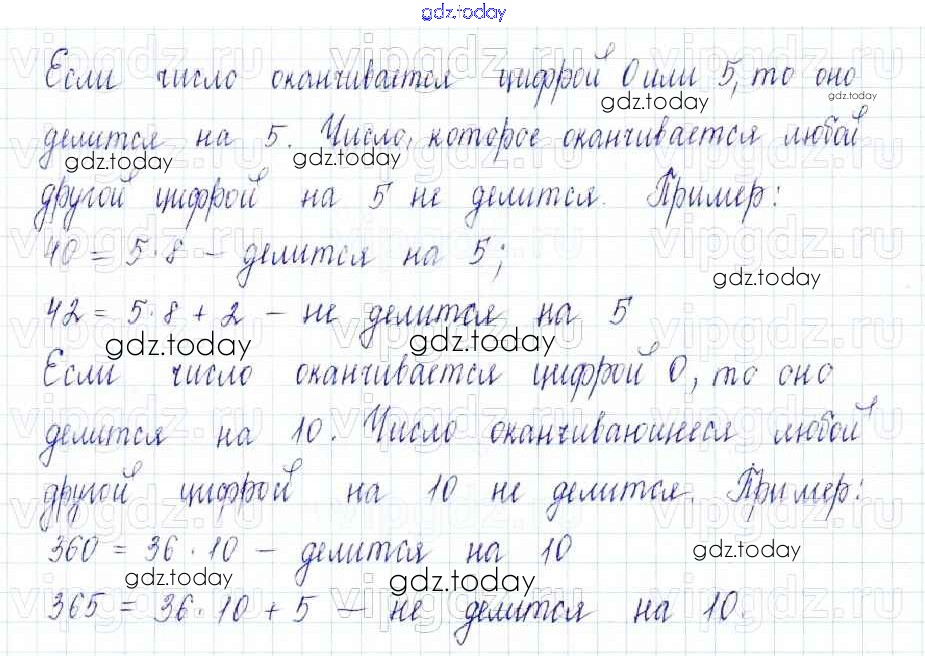 gdz.today
Если число оканчивается цифрой 0 или 5, то оно
gdz.today gdz.today
делится на 5. Число, которое оканчивается любой
gdz.today gdz.today
другой цифрой на 5 не делится. Пример:
vipgdz.ru vipgdz.ru vipgdz.ru vipgdz.ru
40 = 5 · 8 – делится на 5;
gdz.today
42 = 5 · 8 + 2 – не делится на 5
gdz.today gdz.today
Если число оканчивается цифрой 0, то оно
делится на 10. Число оканчивающиеся любой
другой цифрой на 10 не делится. Пример:
360 = 36 · 10 – делится на 10
gdz.today
gdz.today gdz.today
365 = 36 · 10 + 5 – не делится на 10.